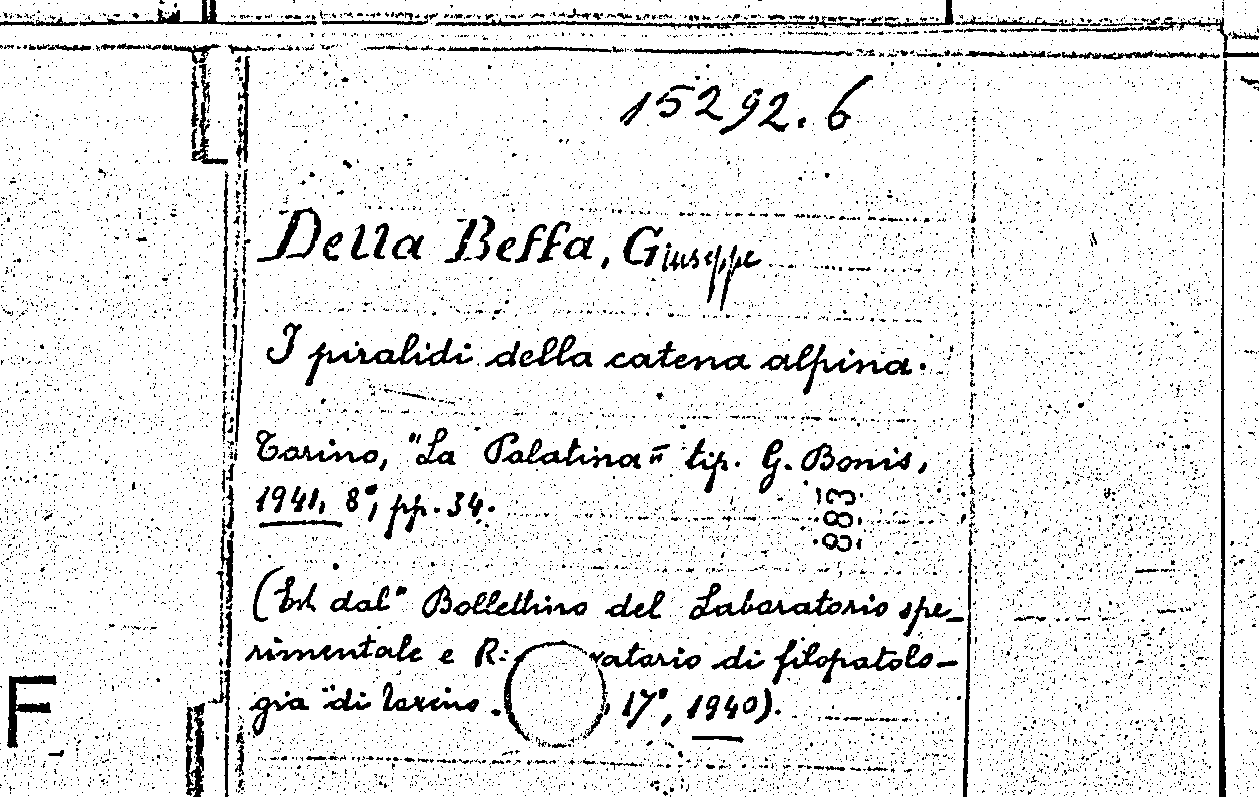 15292.6
Della Beffa, Giuseppe
I piralidi della catena alpina.
Torino, "La Palatina" tip. G. Bonis,
1941, 8°, pp. 34.
883
(Est. dal "Bollettino del Laboratorio spe-
rimentale e R. vatorio di fitopatolo-
gia" di Torino. 17°, 1940).
F